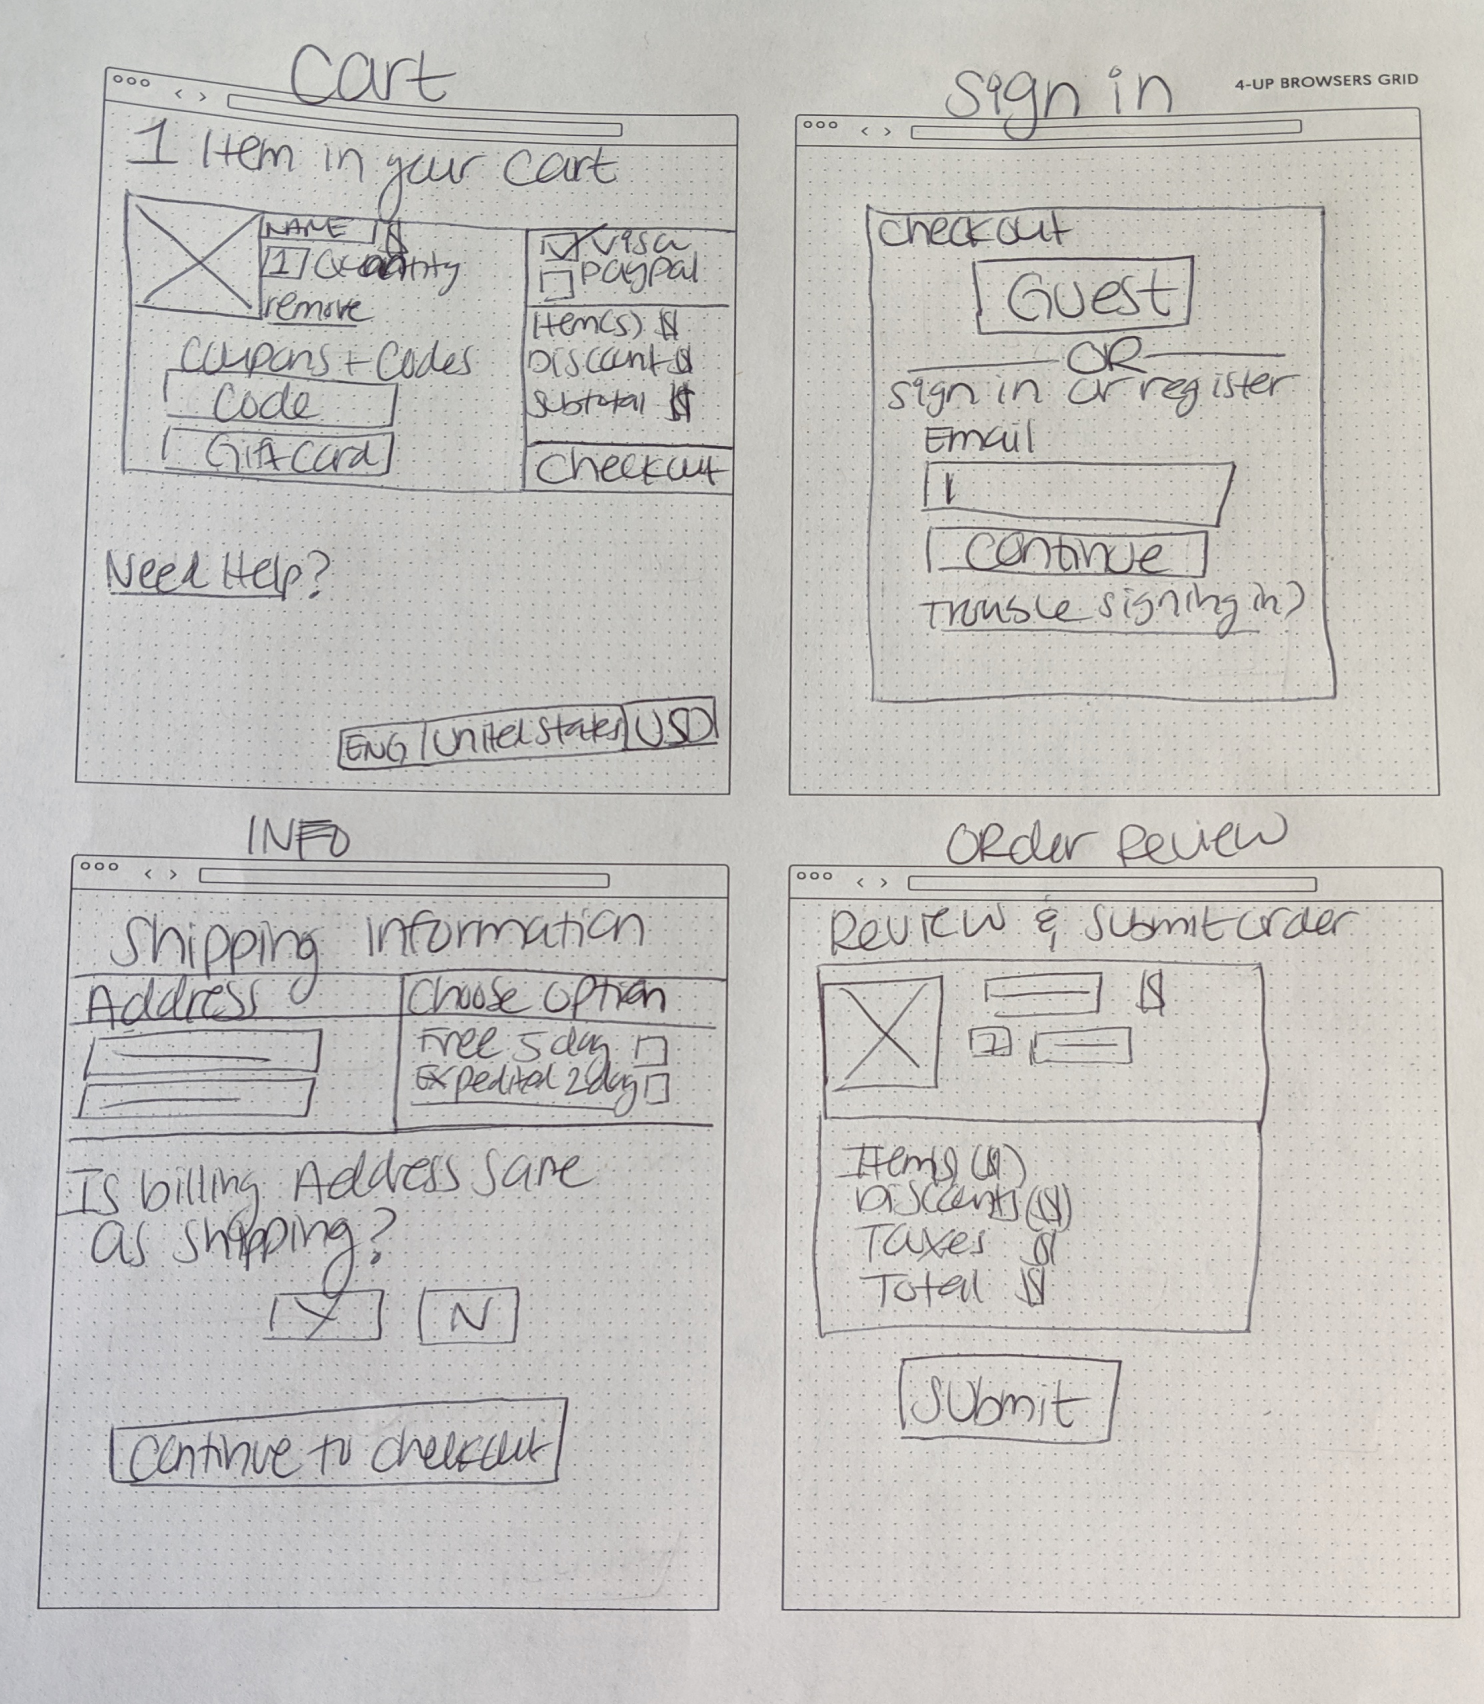 4-UP BROWSERS GRID
Cart
1 Item in your cart
NAME $
1 Quantity
remove
Coupons + Codes
Code
Gift Card
Visa
Paypal
Item(s) $
Discount $
Subtotal $
Checkout
Need Help?
ENG United States USD
Sign in
Checkout
Guest
OR
Sign in or register
Email
Continue
Trouble signing in?
INFO
Shipping Information
Address
Choose Option
Free 5 day
Expedited 2 day
Is billing Address same
as shipping?
Y N
Continue to checkout
Order Review
Review & Submit Order
$
1
Items ($)
Discounts ($)
Taxes $
Total $
Submit